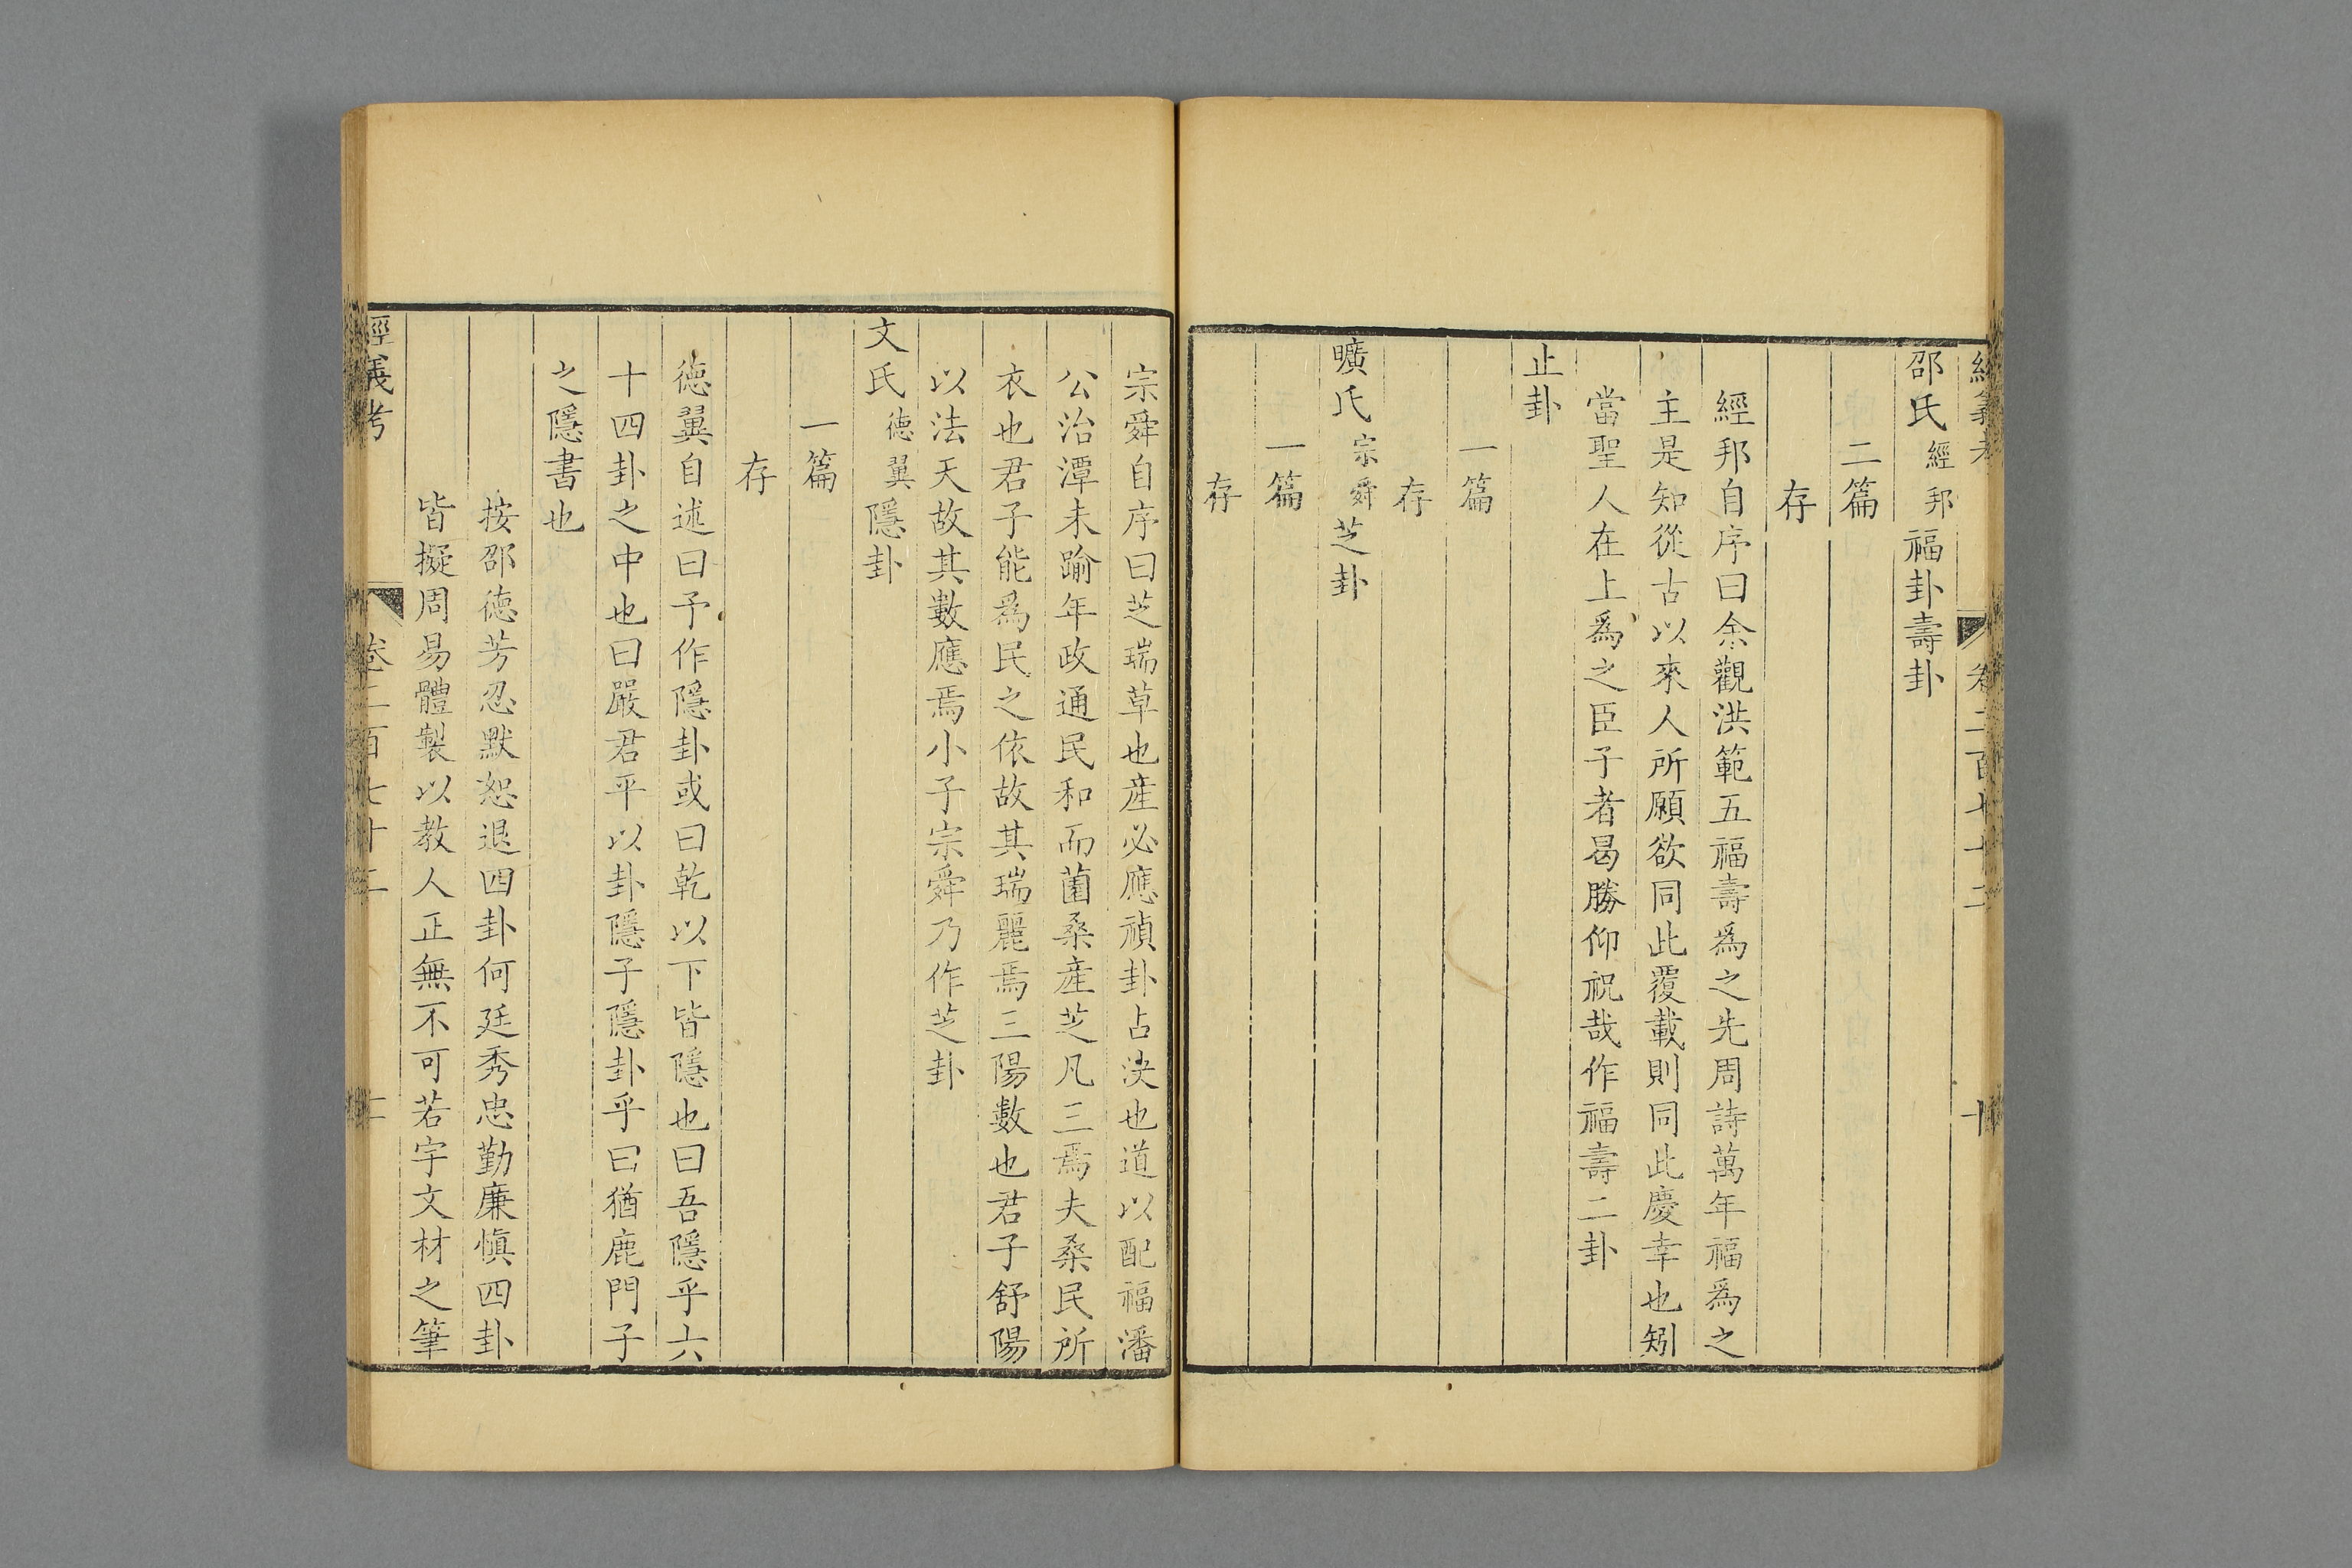 經義考 卷二百七十二 十
邵氏經邦福卦壽卦
二篇
存
經邦自序曰余觀洪範五福壽爲之先周詩萬年福爲之
主是知從古以來人所願欲同此覆載則同此慶幸也矧
當聖人在上爲之臣子者曷勝仰祝哉作福壽二卦
止卦
一篇
存
曠氏宗舜芝卦
一篇
存
宗舜自序曰芝瑞草也産必應禎卦占決也道以配福潘
公治潭未踰年政通民和而菌桑産芝凡三焉夫桑民所
衣也君子能爲民之依故其瑞麗焉三陽數也君子舒陽
以法天故其數應焉小子宗舜乃作芝卦
文氏德翼隱卦
一篇
存
德翼自述曰予作隱卦或曰乾以下皆隱也曰吾隱乎六
十四卦之中也曰嚴君平以卦隱子隱卦乎曰猶鹿門子
之隱書也
按邵德芳忍默恕退四卦何廷秀忠勤廉慎四卦
皆擬周易體製以教人正無不可若宇文材之筆
經義考 卷二百七十二